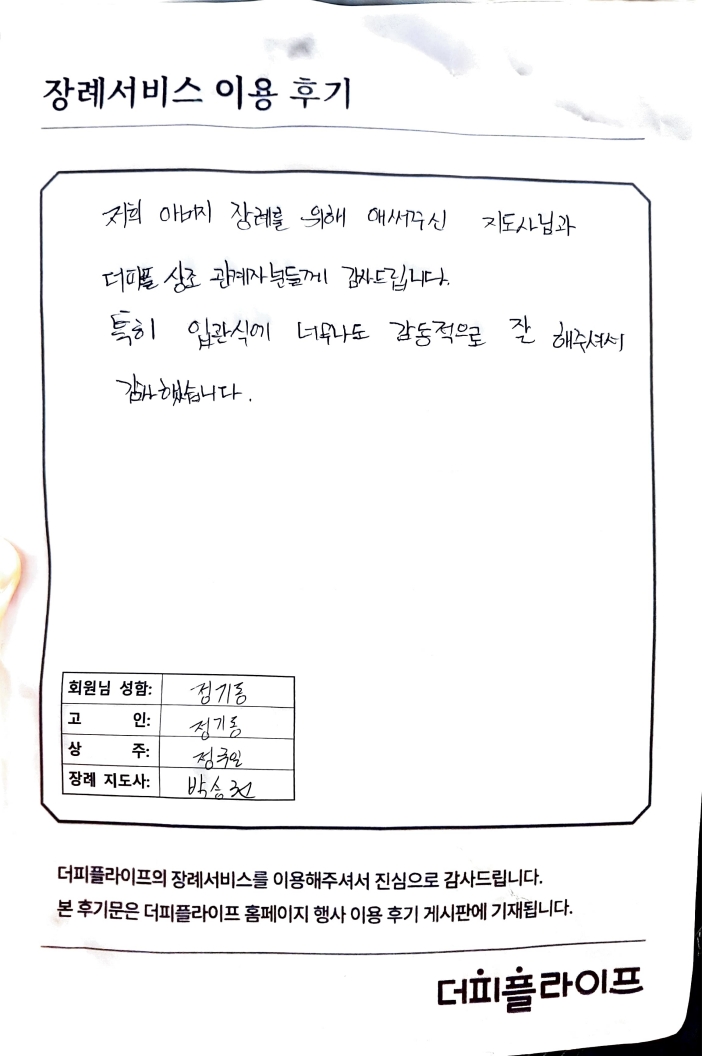 장례서비스 이용 후기
저희 아버지 장례를 위해 애써주신 지도사님과
더피플 상조 관계자분들께 감사드립니다.
특히 입관식에 너무나도 감동적으로 잘 해주셔서
감사했습니다.
회원님 성함: 정기동
고 인: 정기동
상 주: 정국일
장례 지도사: 박승현
더피플라이프의 장례서비스를 이용해주셔서 진심으로 감사드립니다.
본 후기문은 더피플라이프 홈페이지 행사 이용 후기 게시판에 기재됩니다.
더피플라이프